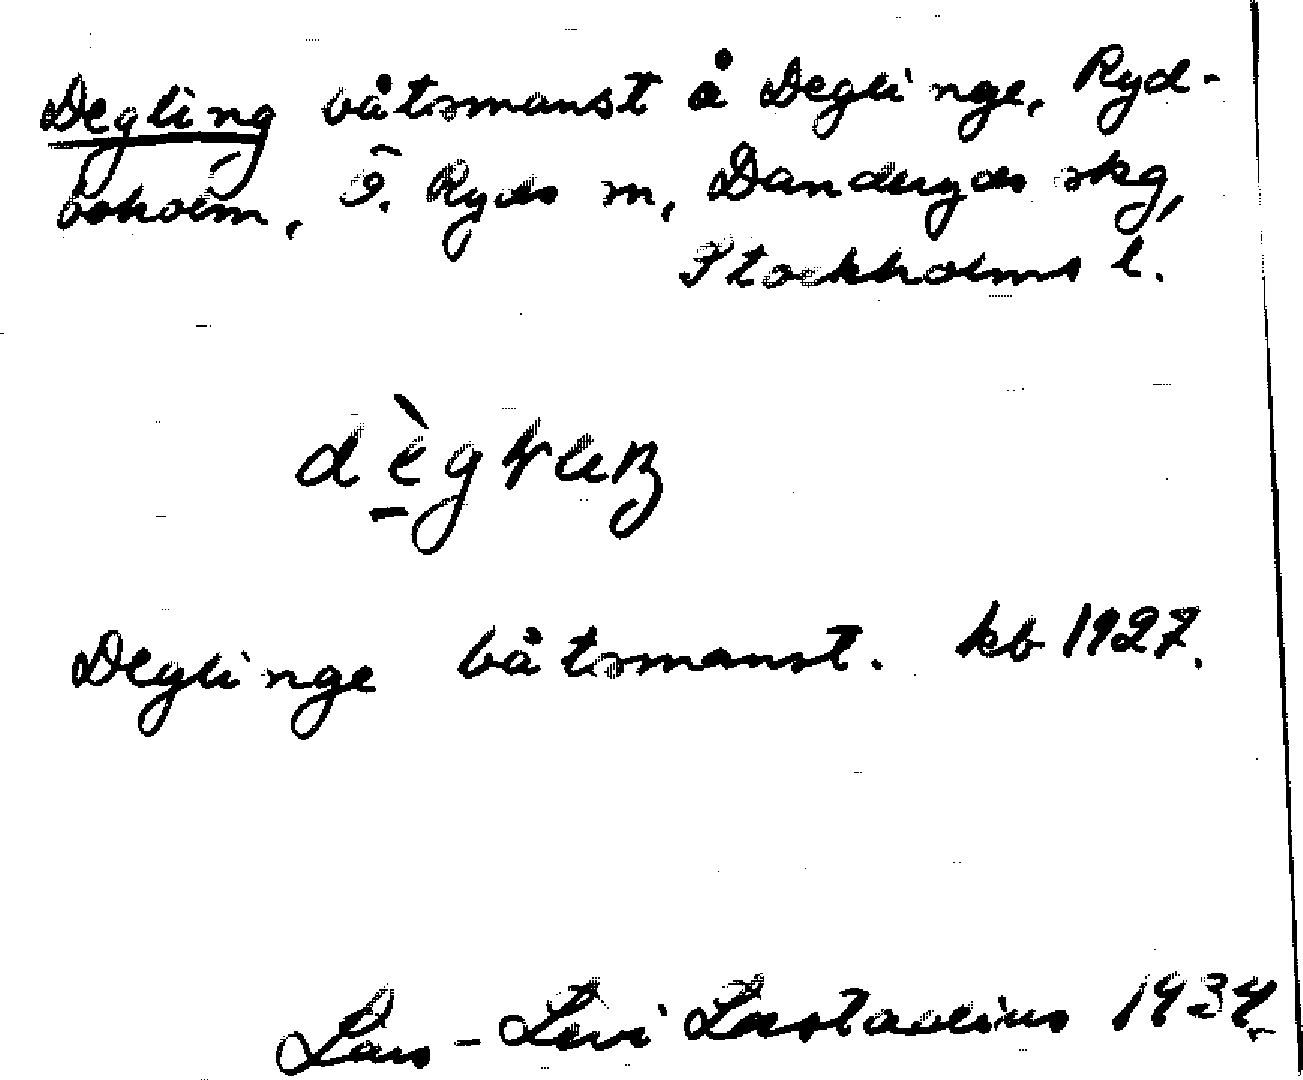 Degling båtsmanst å Deglinge, Ryd-
boholm, Ö. Ryds sn, Danderyds skg,
Stockholms l.
Deglinge båtsmanst. kb 1927.
Lars-Levi Læstadius 1934.